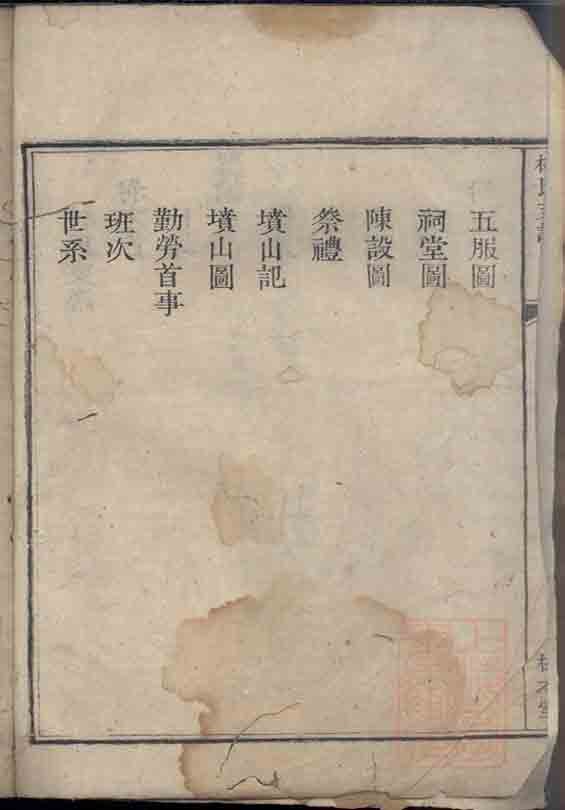 五服圖
祠堂圖
陳設圖
祭禮
墳山記
墳山圖
勤勞首事
班次
世系